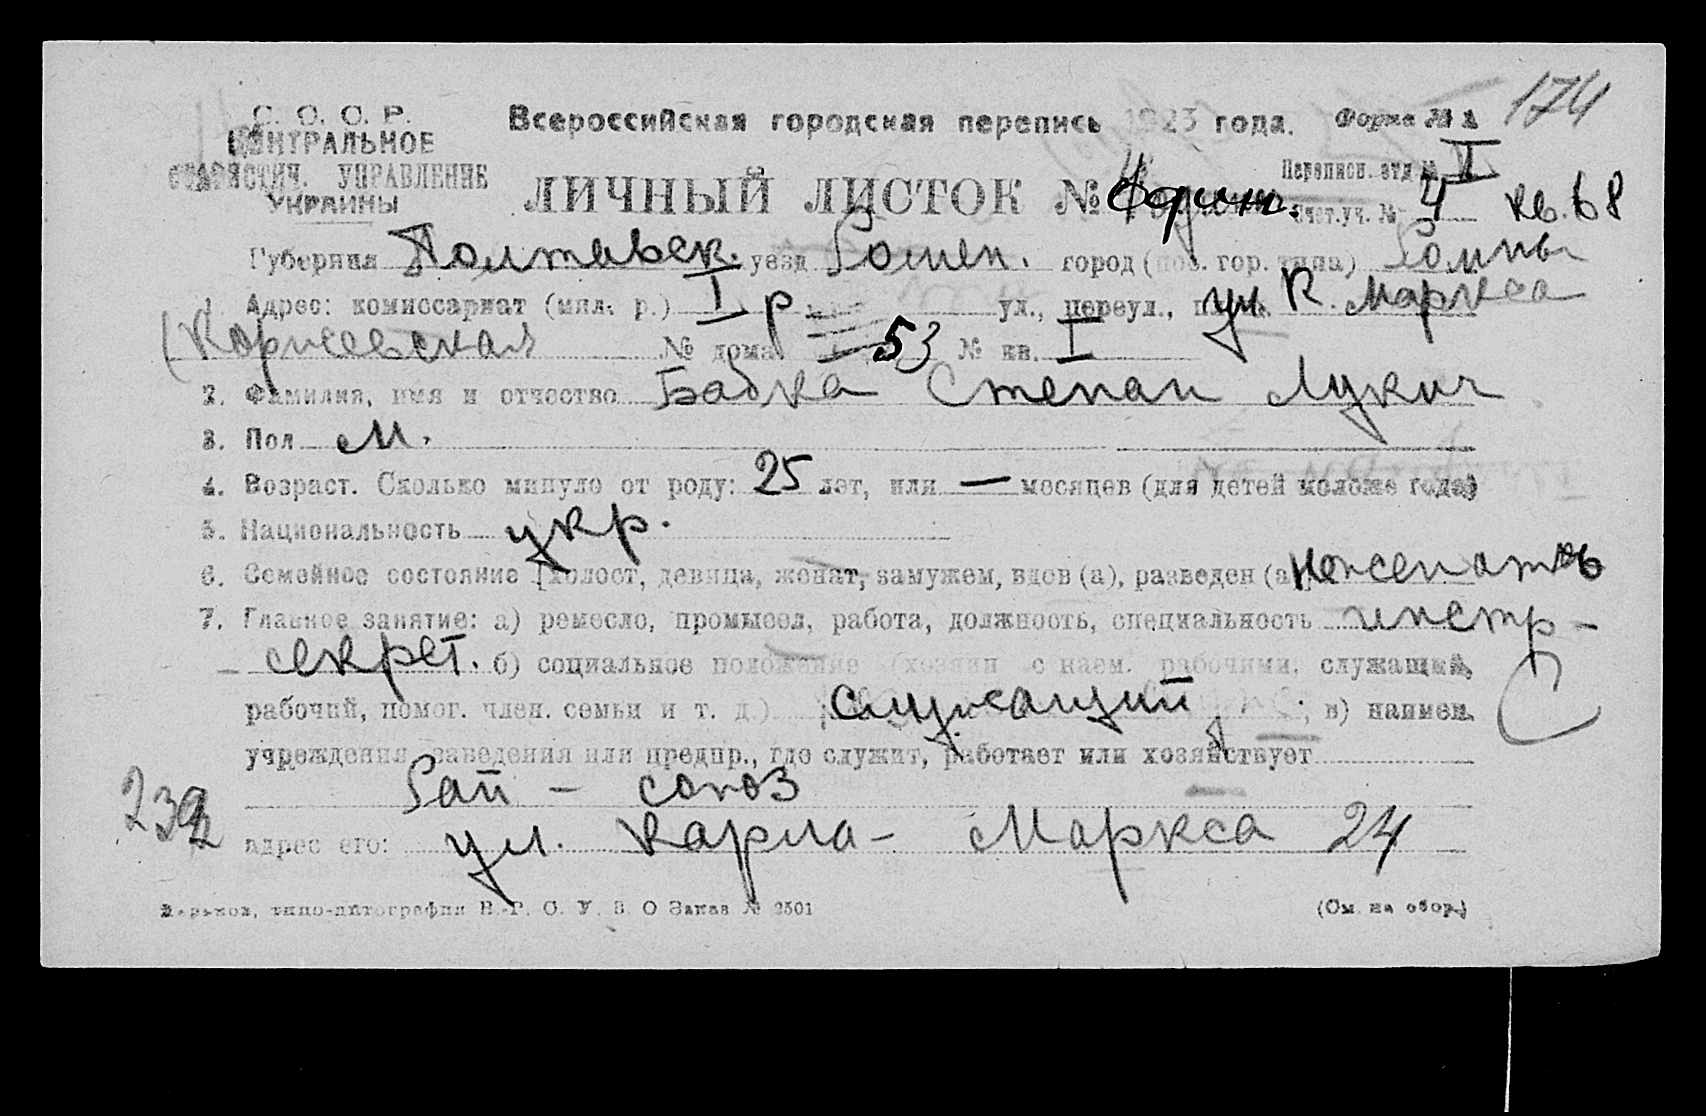 С. С. С. Р.
ЦЕНТРАЛЬНОЕ
СТАТИСТИЧ. УПРАВЛЕНИЕ
УКРАИНЫ
Всероссийская городская перепись 1923 года.
Форма № А
174
ЛИЧНЫЙ ЛИСТОК № Один.
Перепион. отд № VI
Счет.уч. № 4 кв. 68
Губерния Полтавск. уезд Ромен. город (пос. гор. типа) Ромны
1. Адрес: комиссариат (мил. р.) I р ул., переул., ул. К. Маркса
(Коржевская № дома 53 № кв. I
2. Фамилия, имя и отчество Бабка Степан Лукич
3. Пол М.
4. Возраст. Сколько минуло от роду: 25 лет, или — месяцев (для детей моложе года)
5. Национальность укр.
6. Семейное состояние [холост, девица, женат, замужем, вдов (а), разведен (а) неженатъ
7. Главное занятие: а) ремесло, промысел, работа, должность, специальность инстр –
– секрет. б) социальное положение (хозяин с наем. рабочими, служащий,
рабочий, помог. член. семьи и т. д.) служащий ; в) наимен.
учреждения, заведения или предпр., где служит, работает или хозяйствует
Рай – союз
адрес его: ул. Карла – Маркса 24
Харьков, типо-литография В. Заказ № 2501
(См. на обор.)